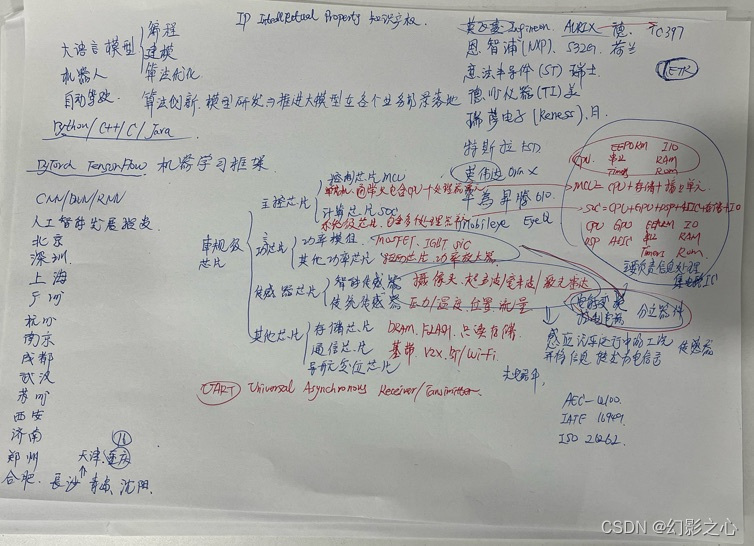 IP Intellectual Property 知识产权.
大语言模型 编程
建模
算法优化
机器人
自动驾驶. 算法创新. 模型研发 推进大模型在各个业务场景落地
Python/C++/C/Java
TensorFlow 机器学习框架
CNN/DNN/RNN
北京
深圳
上海
广州
杭州
南京
成都
武汉
苏州
西安
济南
郑州
合肥. 长沙 青岛. 沈阳.
天津. 重庆
16
英飞凌 Infineon AURIX 德. TC397
恩智浦(NXP). S32G. 荷兰
意法半导体(ST) 瑞士.
德州仪器(TI) 美
瑞萨电子 日.
特斯拉 FSD
英伟达 Orin x
华为昇腾610
Mobileye EyeQ
车规级芯片
主控芯片
控制芯片 MCU
计算芯片 SOC
功率芯片
功率模组 MOSFET. IGBT SiC
其他功率芯片
传感器芯片
智能传感器 摄像头. 激光雷达/毫米波/
传统传感器 压力/温度. 位置. 流量
其他芯片
存储芯片 DRAM. FLASH.
通信芯片 基带 V2X. BT/Wi-Fi
导航定位芯片
UART Universal Asynchronous Receiver/Transmitter.
CPU EEPROM I/O
串口 RAM
Timers Rom
MCU = CPU + 存储 + 接口单元.
SOC = CPU+GPU+DSP+ASIC+存储+IO
CPU GPU EEPROM IO
DSP ASIC 串口 RAM
Timers Rom.
集成电路IC
分立器件
传感器
AEC-Q100.
IATF 16949.
ISO 26262.
CSDN @幻影之心